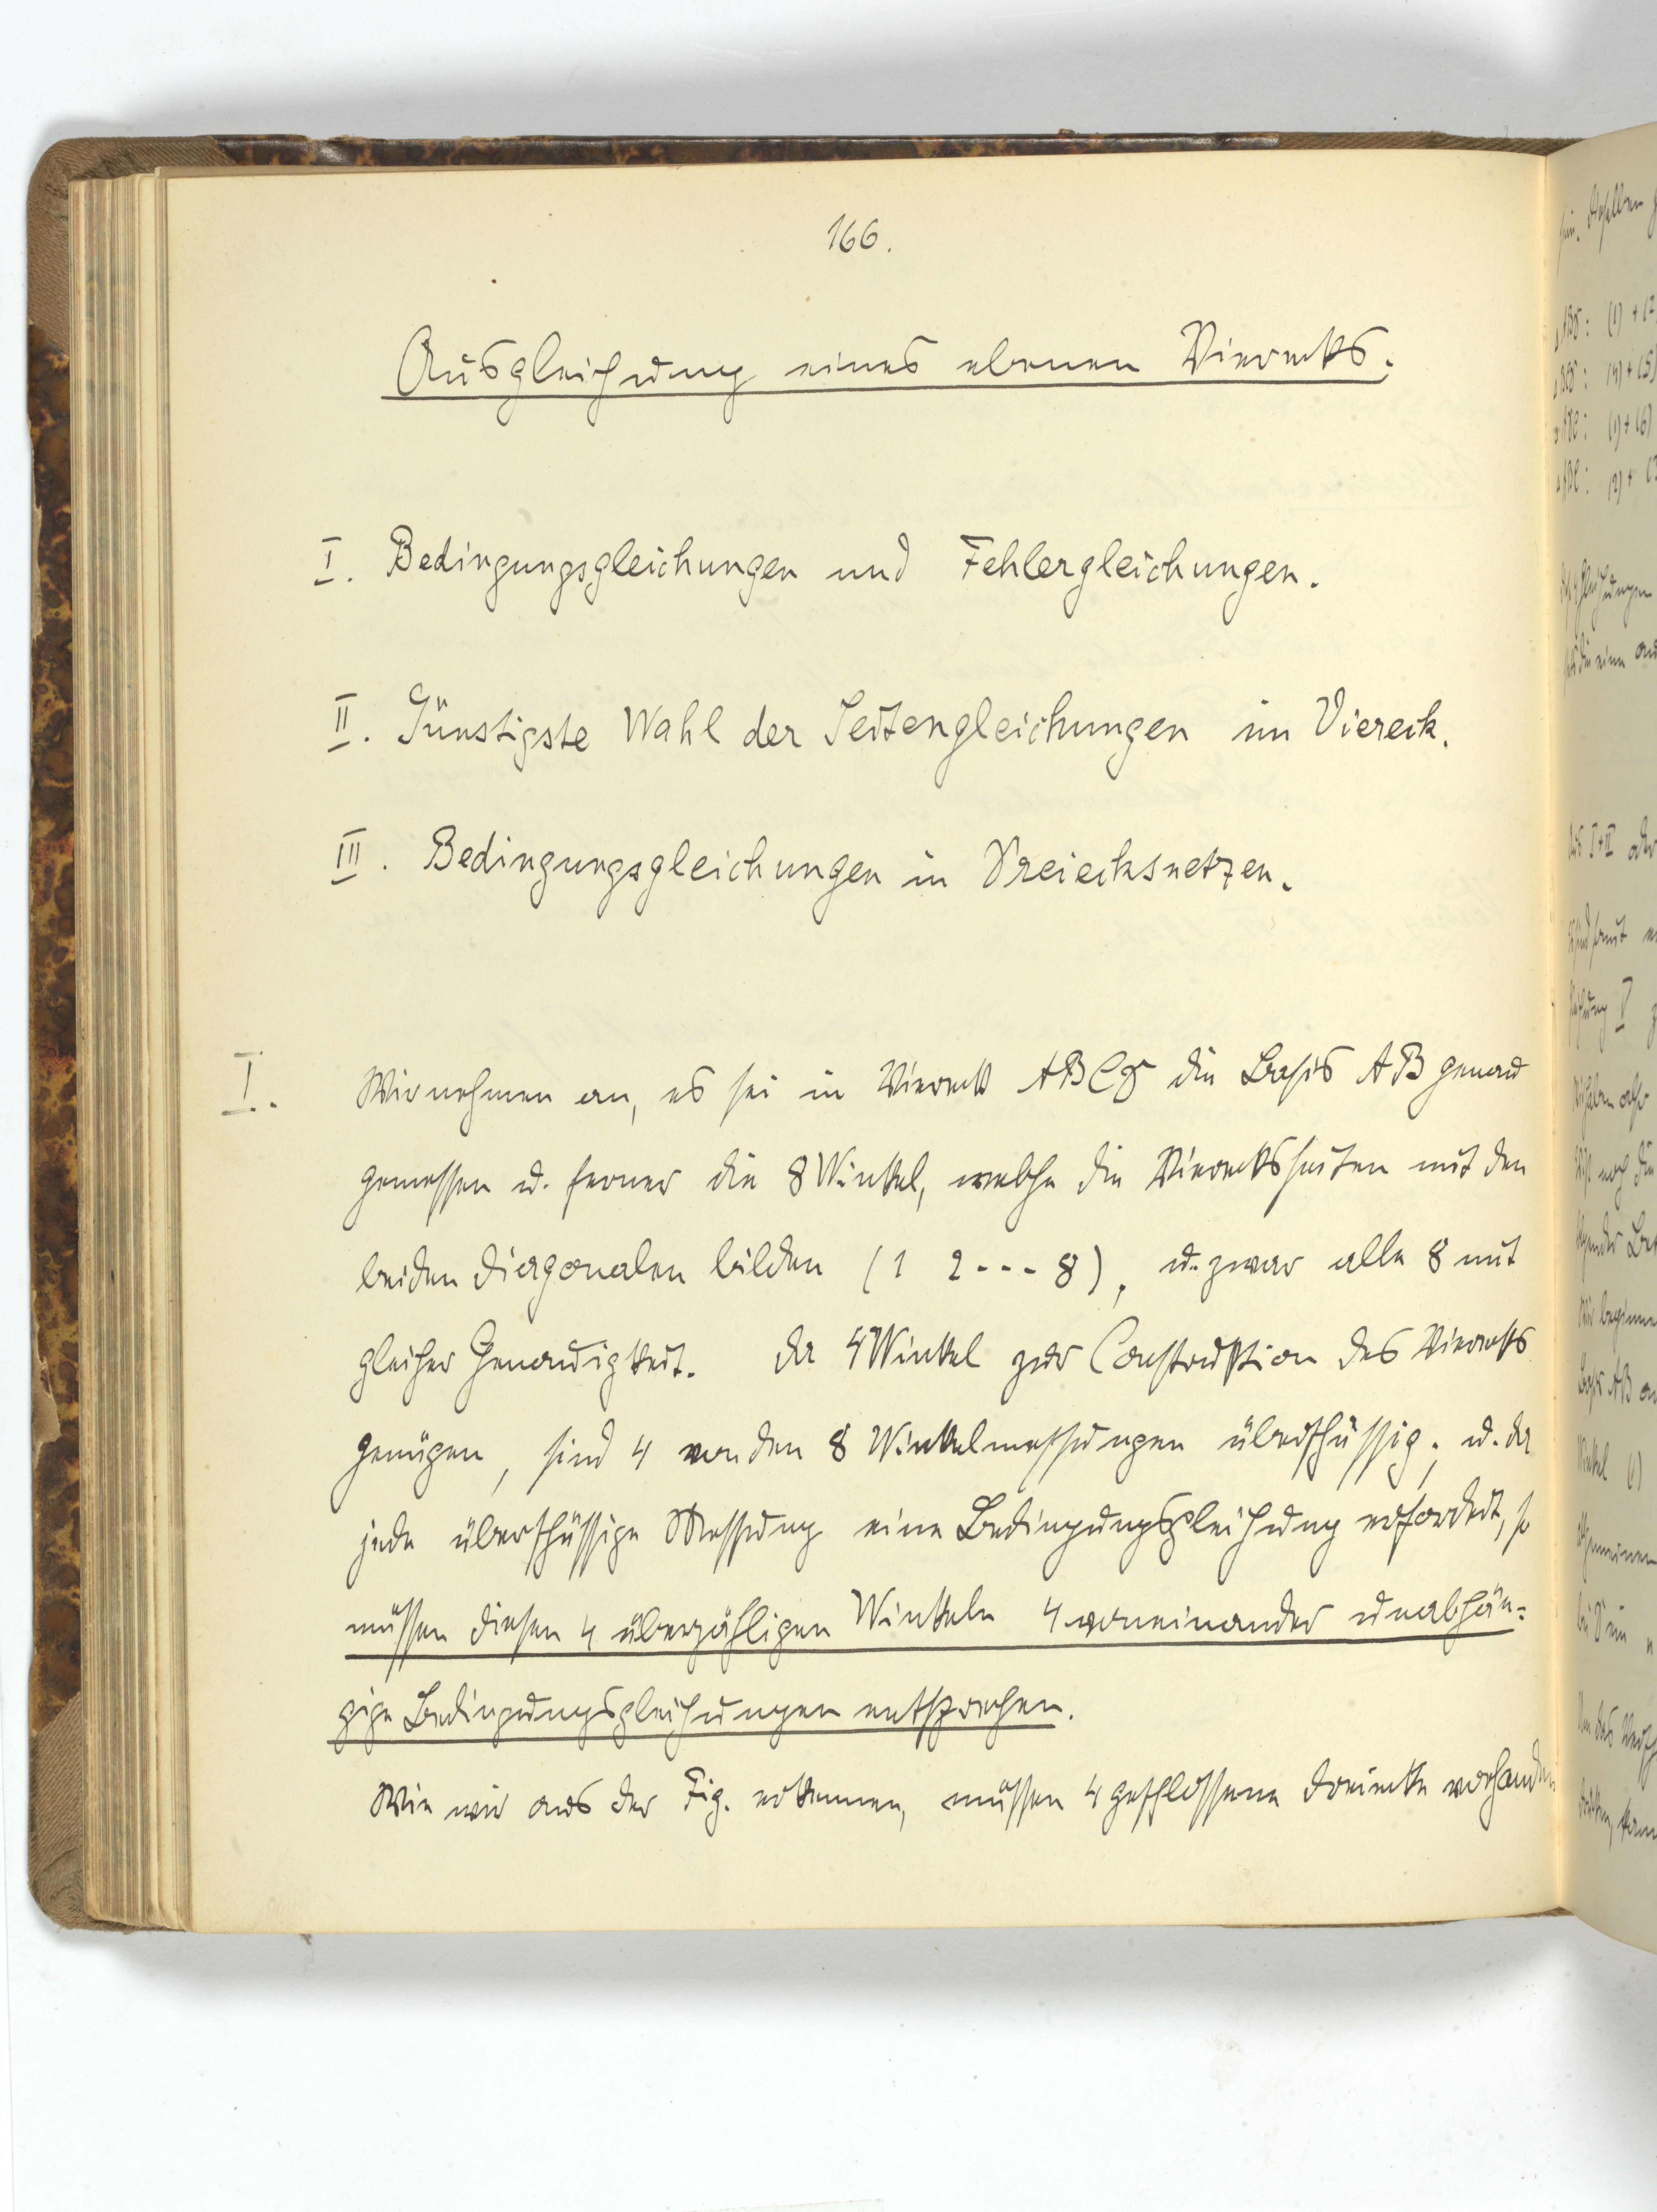 166.
Ausgleichung eines ebenen Vierecks.
I. Bedingungsgleichungen und Fehlergleichungen.
II. Günstigste Wahl der Seitengleichungen im Viereck.
III. Bedingungsgleichungen in Dreiecksnetzen.
I. Wir nehmen an, es sei in Viereck ABCD die Basis AB genau
gemessen u. ferner die 8 Winkel, welche die Vierecksseiten mit den
beiden Diagonalen bilden (1 2 - - - 8), u. zwar alle 8 mit
gleicher Genauigkeit. Da 4 Winkel zur Construktion des Vierecks
genügen, sind 4 von den 8 Winkelmessungen überschüssig; u. da
jede überschüssige Messung eine Bedingungsgleichung erfordert, so
müssen diesen 4 überzähligen Winkeln 4 voneinander unabhän=
gige Bedingungsgleichungen entsprechen.
Wie wir aus der Fig. erkennen, müssen 4 geschlossene Dreiecke vorhanden